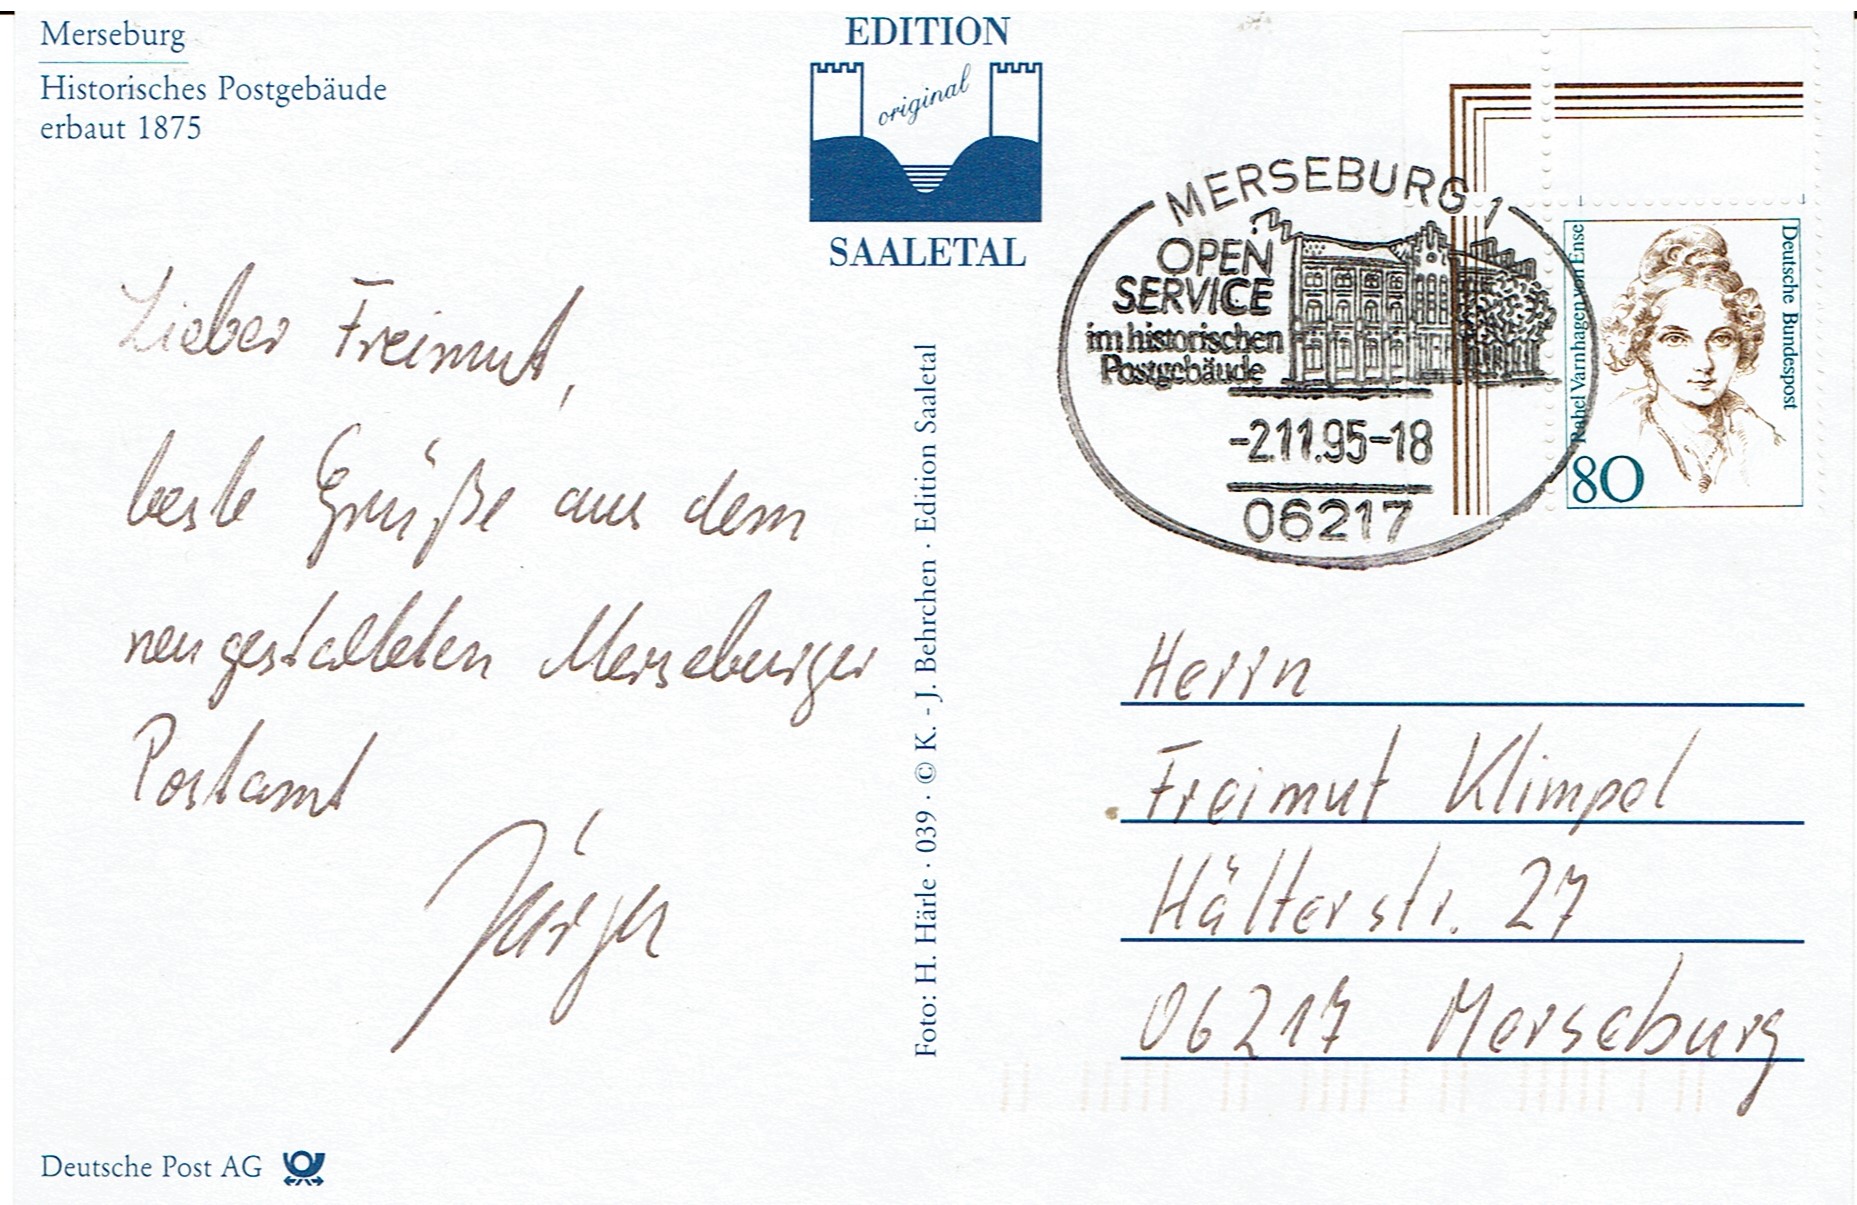 Merseburg
Historisches Postgebäude
erbaut 1875
EDITION
original
SAALETAL
MERSEBURG 1
OPEN
SERVICE
im historischen
Postgebäude
-2.11.95-18
06217
Rahel Varnhagen von Ense
Deutsche Bundespost
80
Lieber Freimut,
beste Grüße aus dem
neugestalteten Merseburger
Postamt
Jürgen
Foto: H. Härle · 039 · © K. - J. Behrchen · Edition Saaletal
Herrn
Freimut Klimpel
Hälterstr. 27
06217 Merseburg
Deutsche Post AG